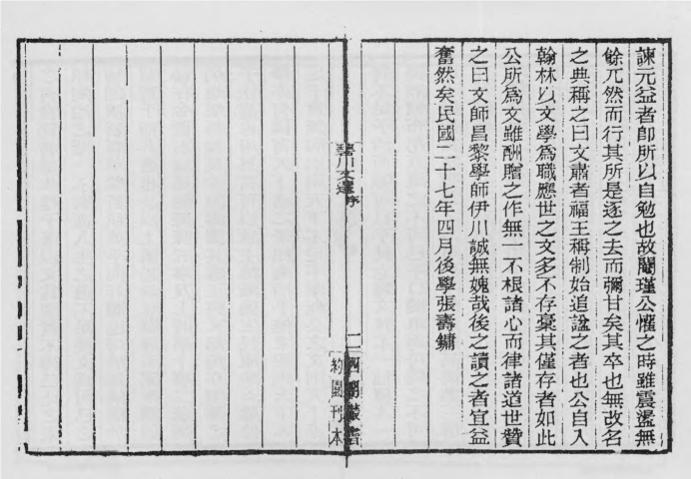 諫元益者卽所以自勉也故閹瑾公之時雖震盪無
餘兀然而行其所是逐之去而彌甘矣其卒也無改名
之典稱之曰文肅者福王稱制始追諡之者也公自入
翰林以文學爲職應世之文多不存稾其僅存者如此
公所爲文雖酬贈之作無一不根諸心而律諸道世贊
之曰文師昌黎學師伊川誠無媿哉後之讀之者宜益
奮然矣民國二十七年四月後學張壽鏞
碧川文選序
二
四明叢書
約園刊本